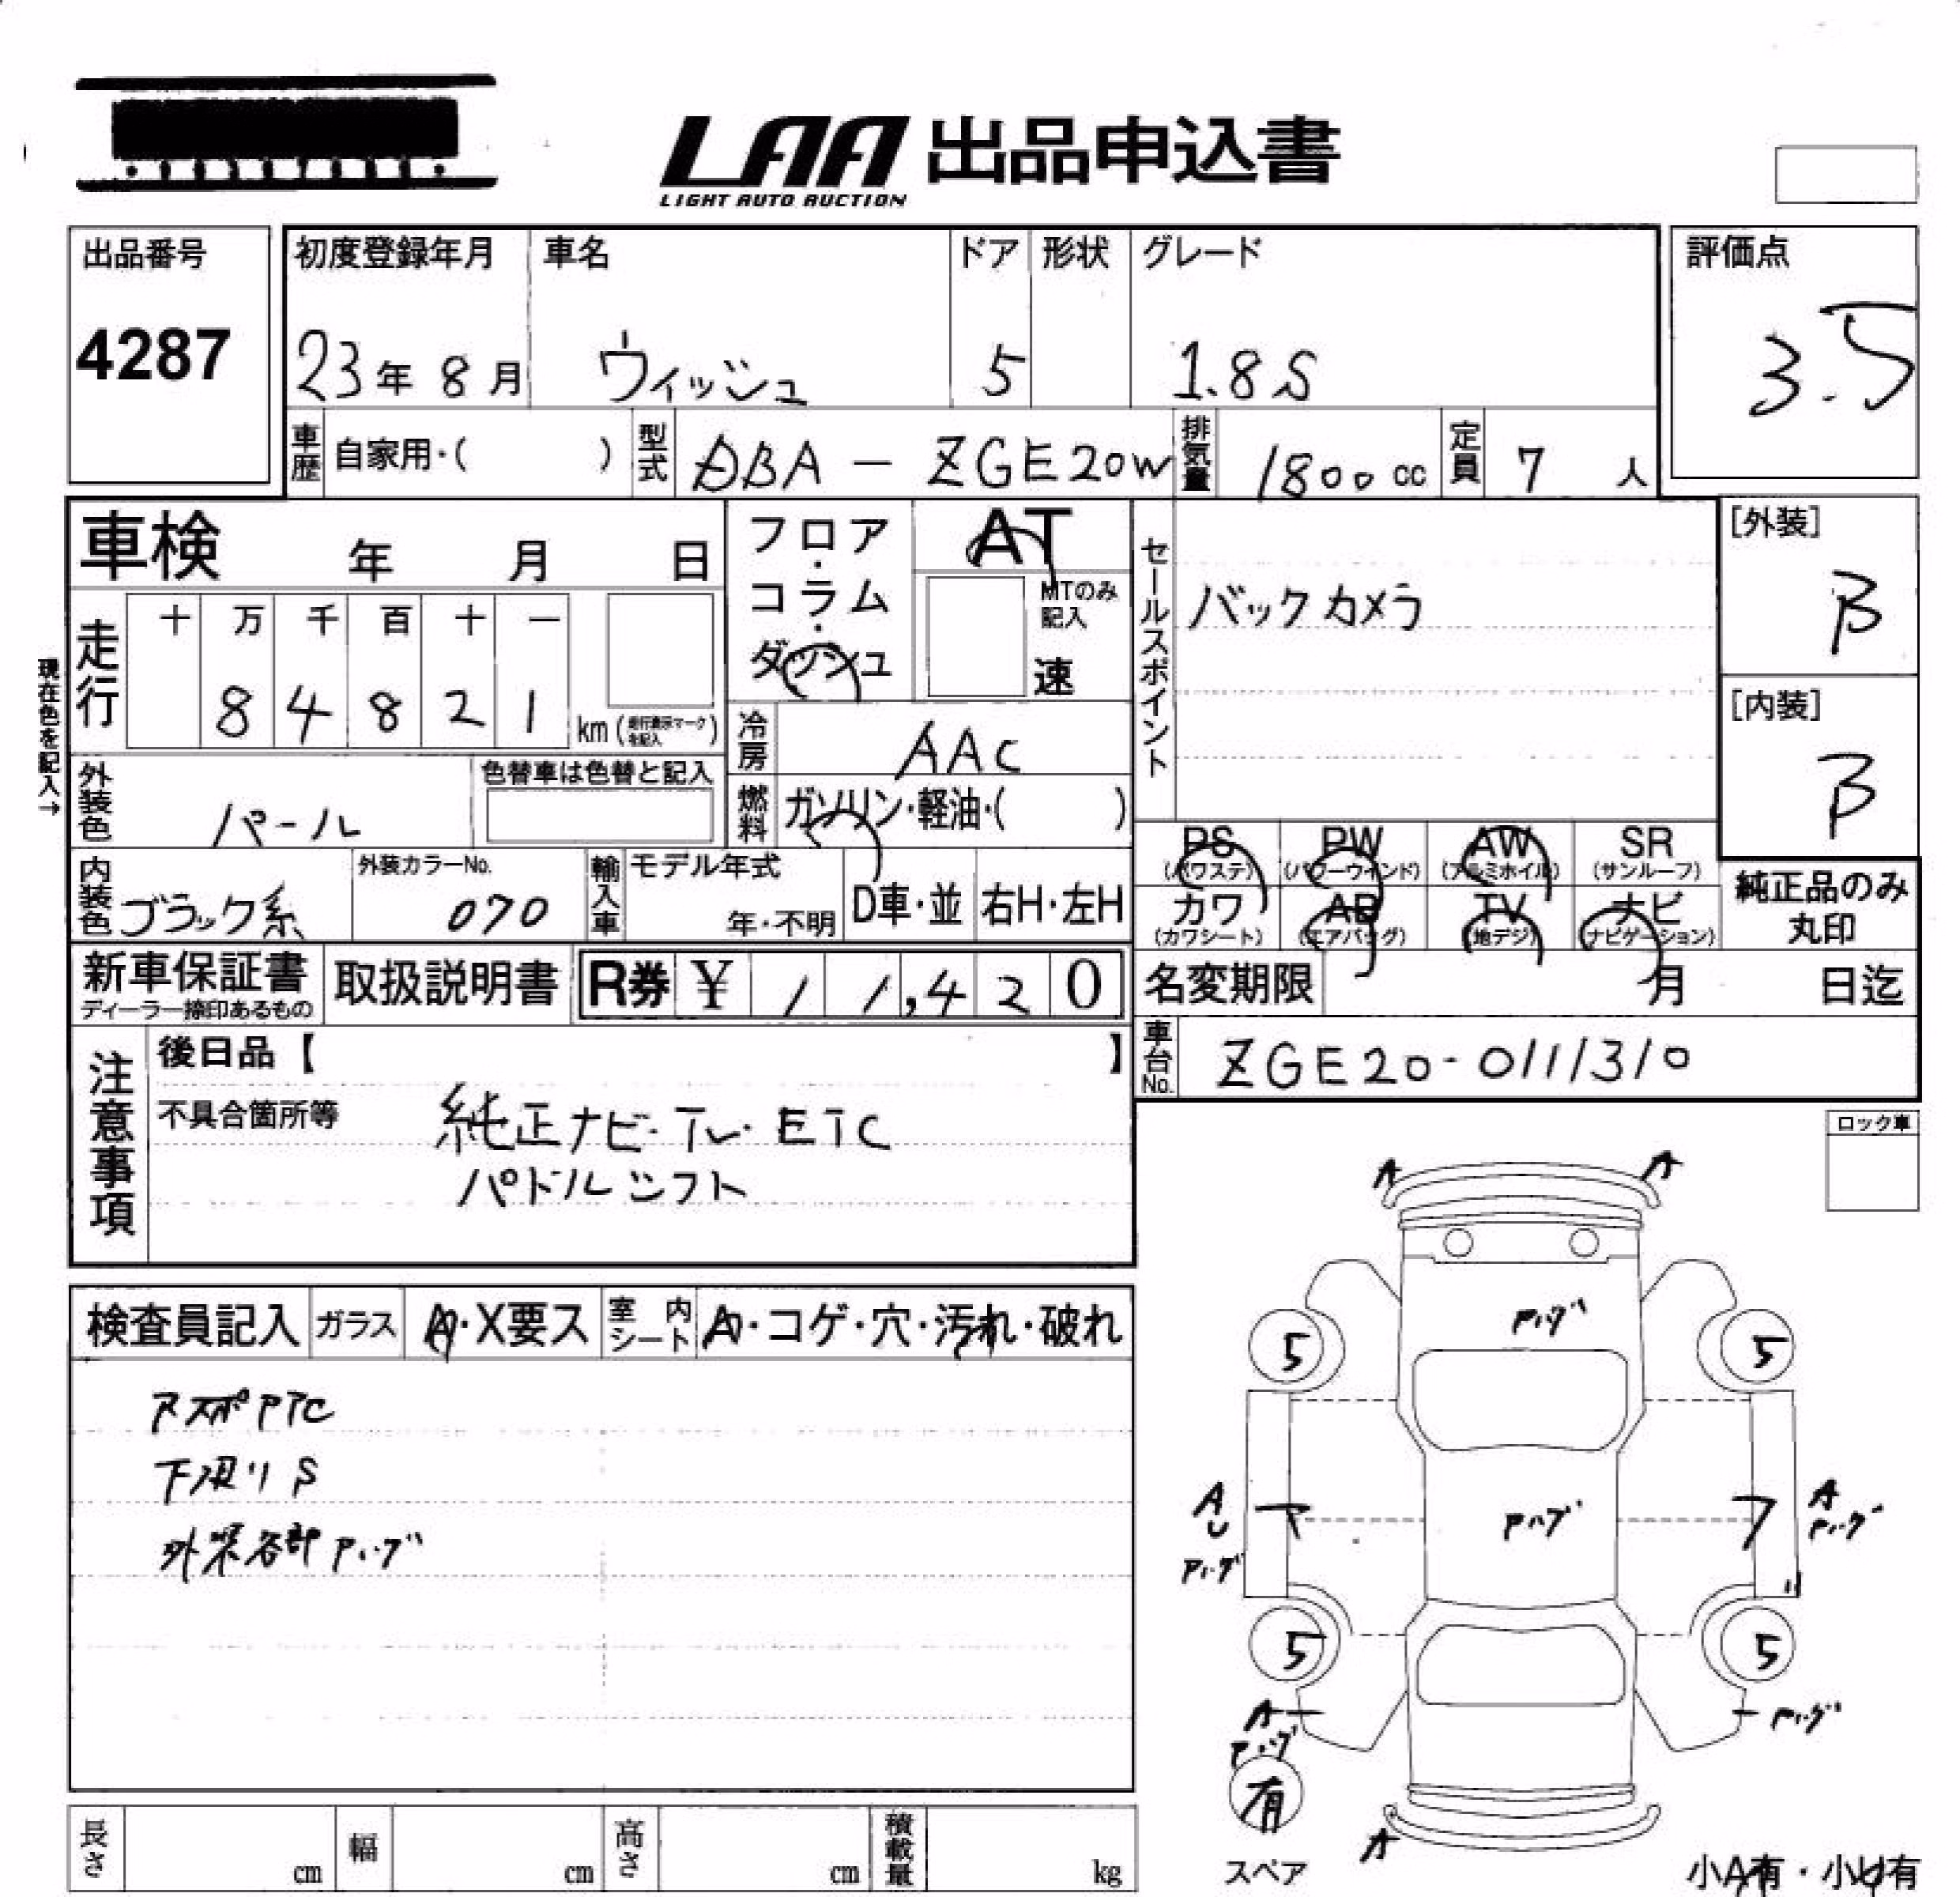 LAA 出品申込書
LIGHT AUTO AUCTION
出品番号
4287
初度登録年月 車名 ドア 形状 グレード
23年 8月 ウィッシュ 5 1.8S
評価点
3.5
車歴 自家用・( ) 型式 DBA - ZGE20W 排気量 1800cc 定員 7 人
車検 年 月 日
フロア・コラム・ダッシュ
AT
MTのみ記入
速
セールスポイント
バックカメラ
[外装]
B
[内装]
B
現在色を記入→
走行 十 万 千 百 十 一
8 4 8 2 1 km (走行表示マークを記入)
冷房 AAC
外装色 パール
色替車は色替と記入
燃料 ガソリン・軽油・( )
内装色 ブラック系
外装カラーNo.
070
輸入車 モデル年式
年・不明 D車・並 右H・左H
PS (パワステ) PW (パワーウィンド) AW (アルミホイル) SR (サンルーフ)
カワ (カワシート) AB (エアバッグ) TV (地デジ) ナビ (ナビゲーション)
純正品のみ丸印
新車保証書 ディーラー捺印あるもの
取扱説明書
R券 ¥ 1 1,4 2 0
名変期限 月 日迄
車台No. ZGE20-0111310
注意事項
後日品【 】
不具合箇所等
純正ナビ・TV・ETC
パドルシフト
ロック車
検査員記入 ガラス A・X要ス 室内シート A・コゲ・穴・汚れ・破れ
下廻りS
外装各部
A A
5 5
A
U
A
5 5
A
有
スペア
A
小A有・小U有
長さ cm 幅 cm 高さ cm 積載量 kg